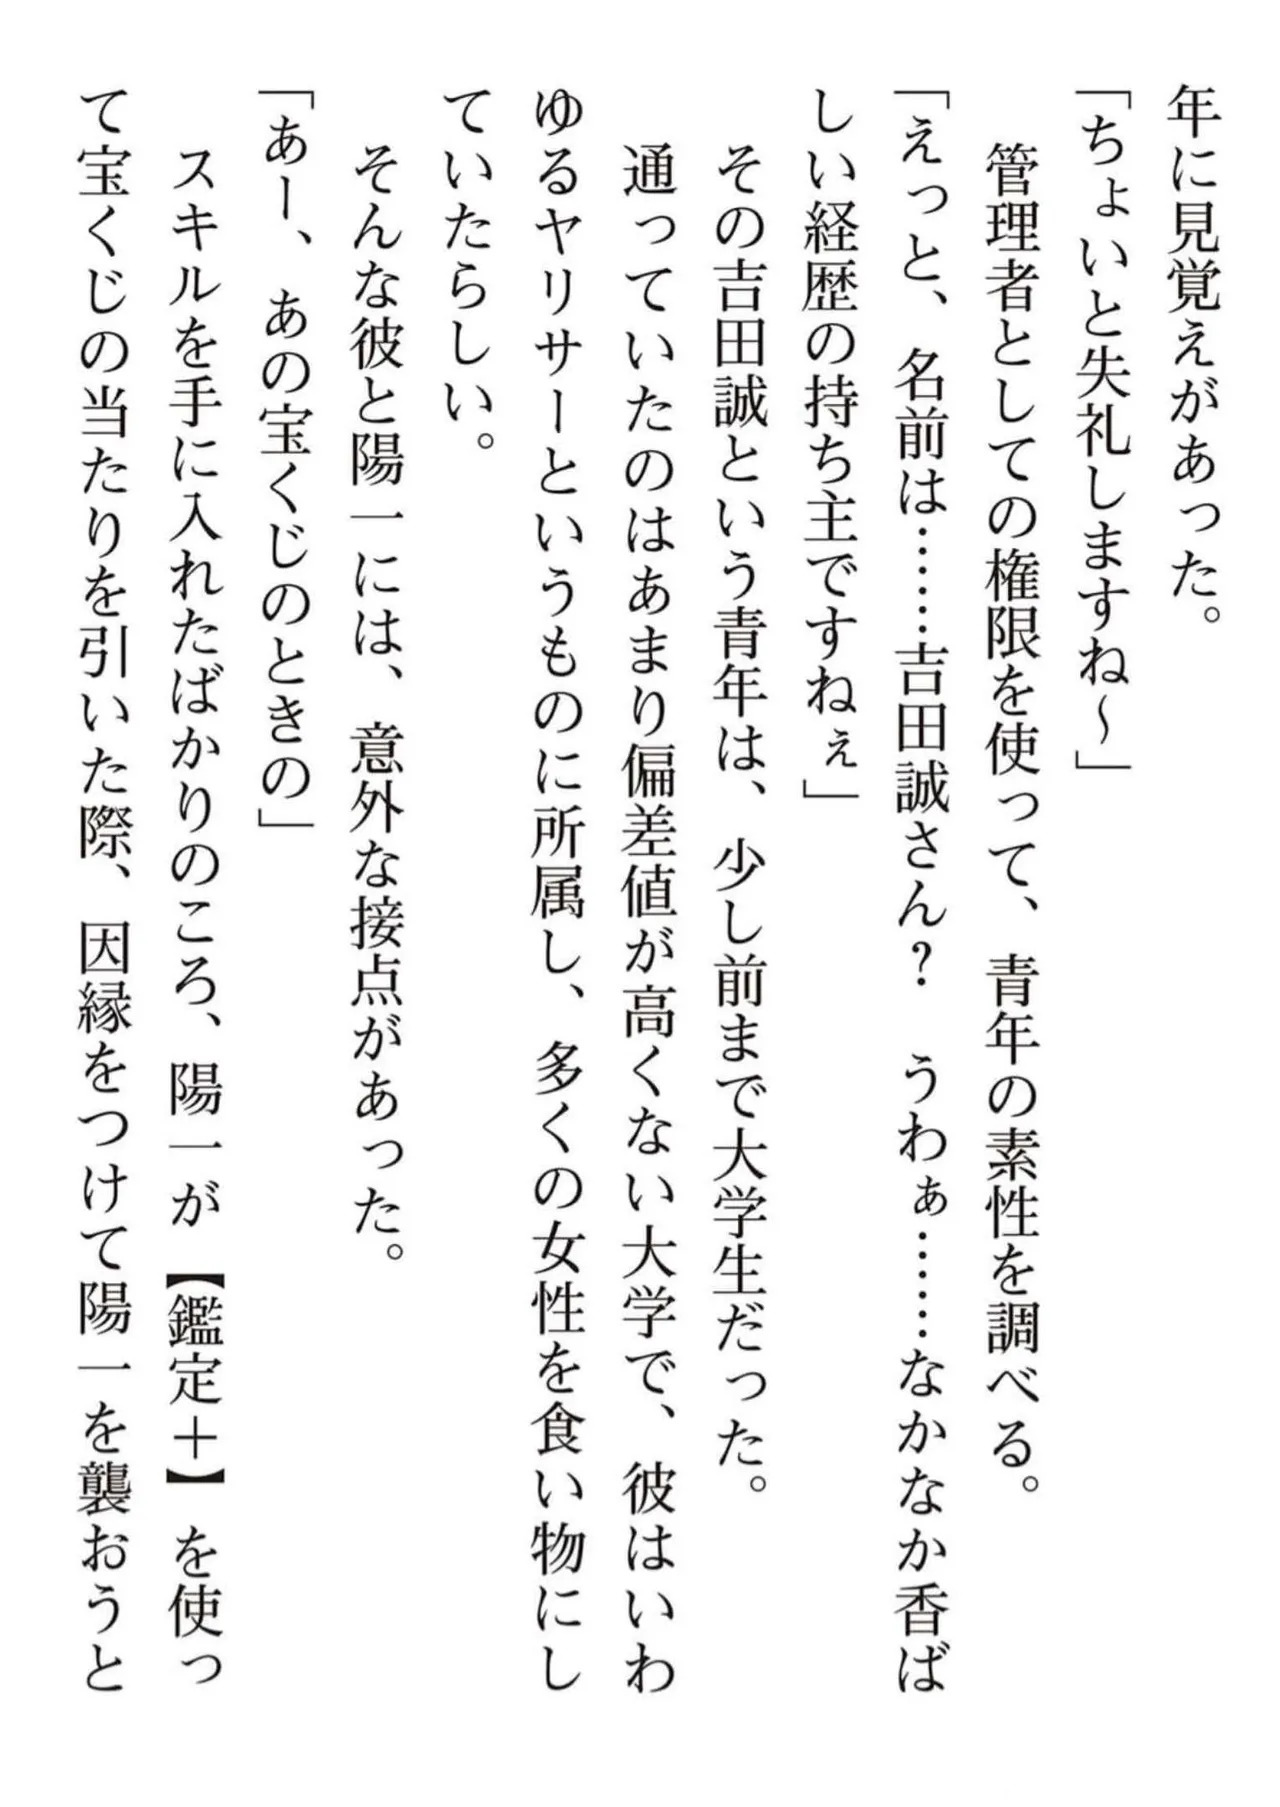 年に見覚えがあった。
「ちょいと失礼しますね～」
管理者としての権限を使って、青年の素性を調べる。
「えっと、名前は……吉田誠さん？　うわぁ……なかなか香ば
しい経歴の持ち主ですねぇ」
その吉田誠という青年は、少し前まで大学生だった。
通っていたのはあまり偏差値が高くない大学で、彼はいわ
ゆるヤリサーというものに所属し、多くの女性を食い物にし
ていたらしい。
そんな彼と陽一には、意外な接点があった。
「あー、あの宝くじのときの」
スキルを手に入れたばかりのころ、陽一が【鑑定＋】を使っ
て宝くじの当たりを引いた際、因縁をつけて陽一を襲おうと